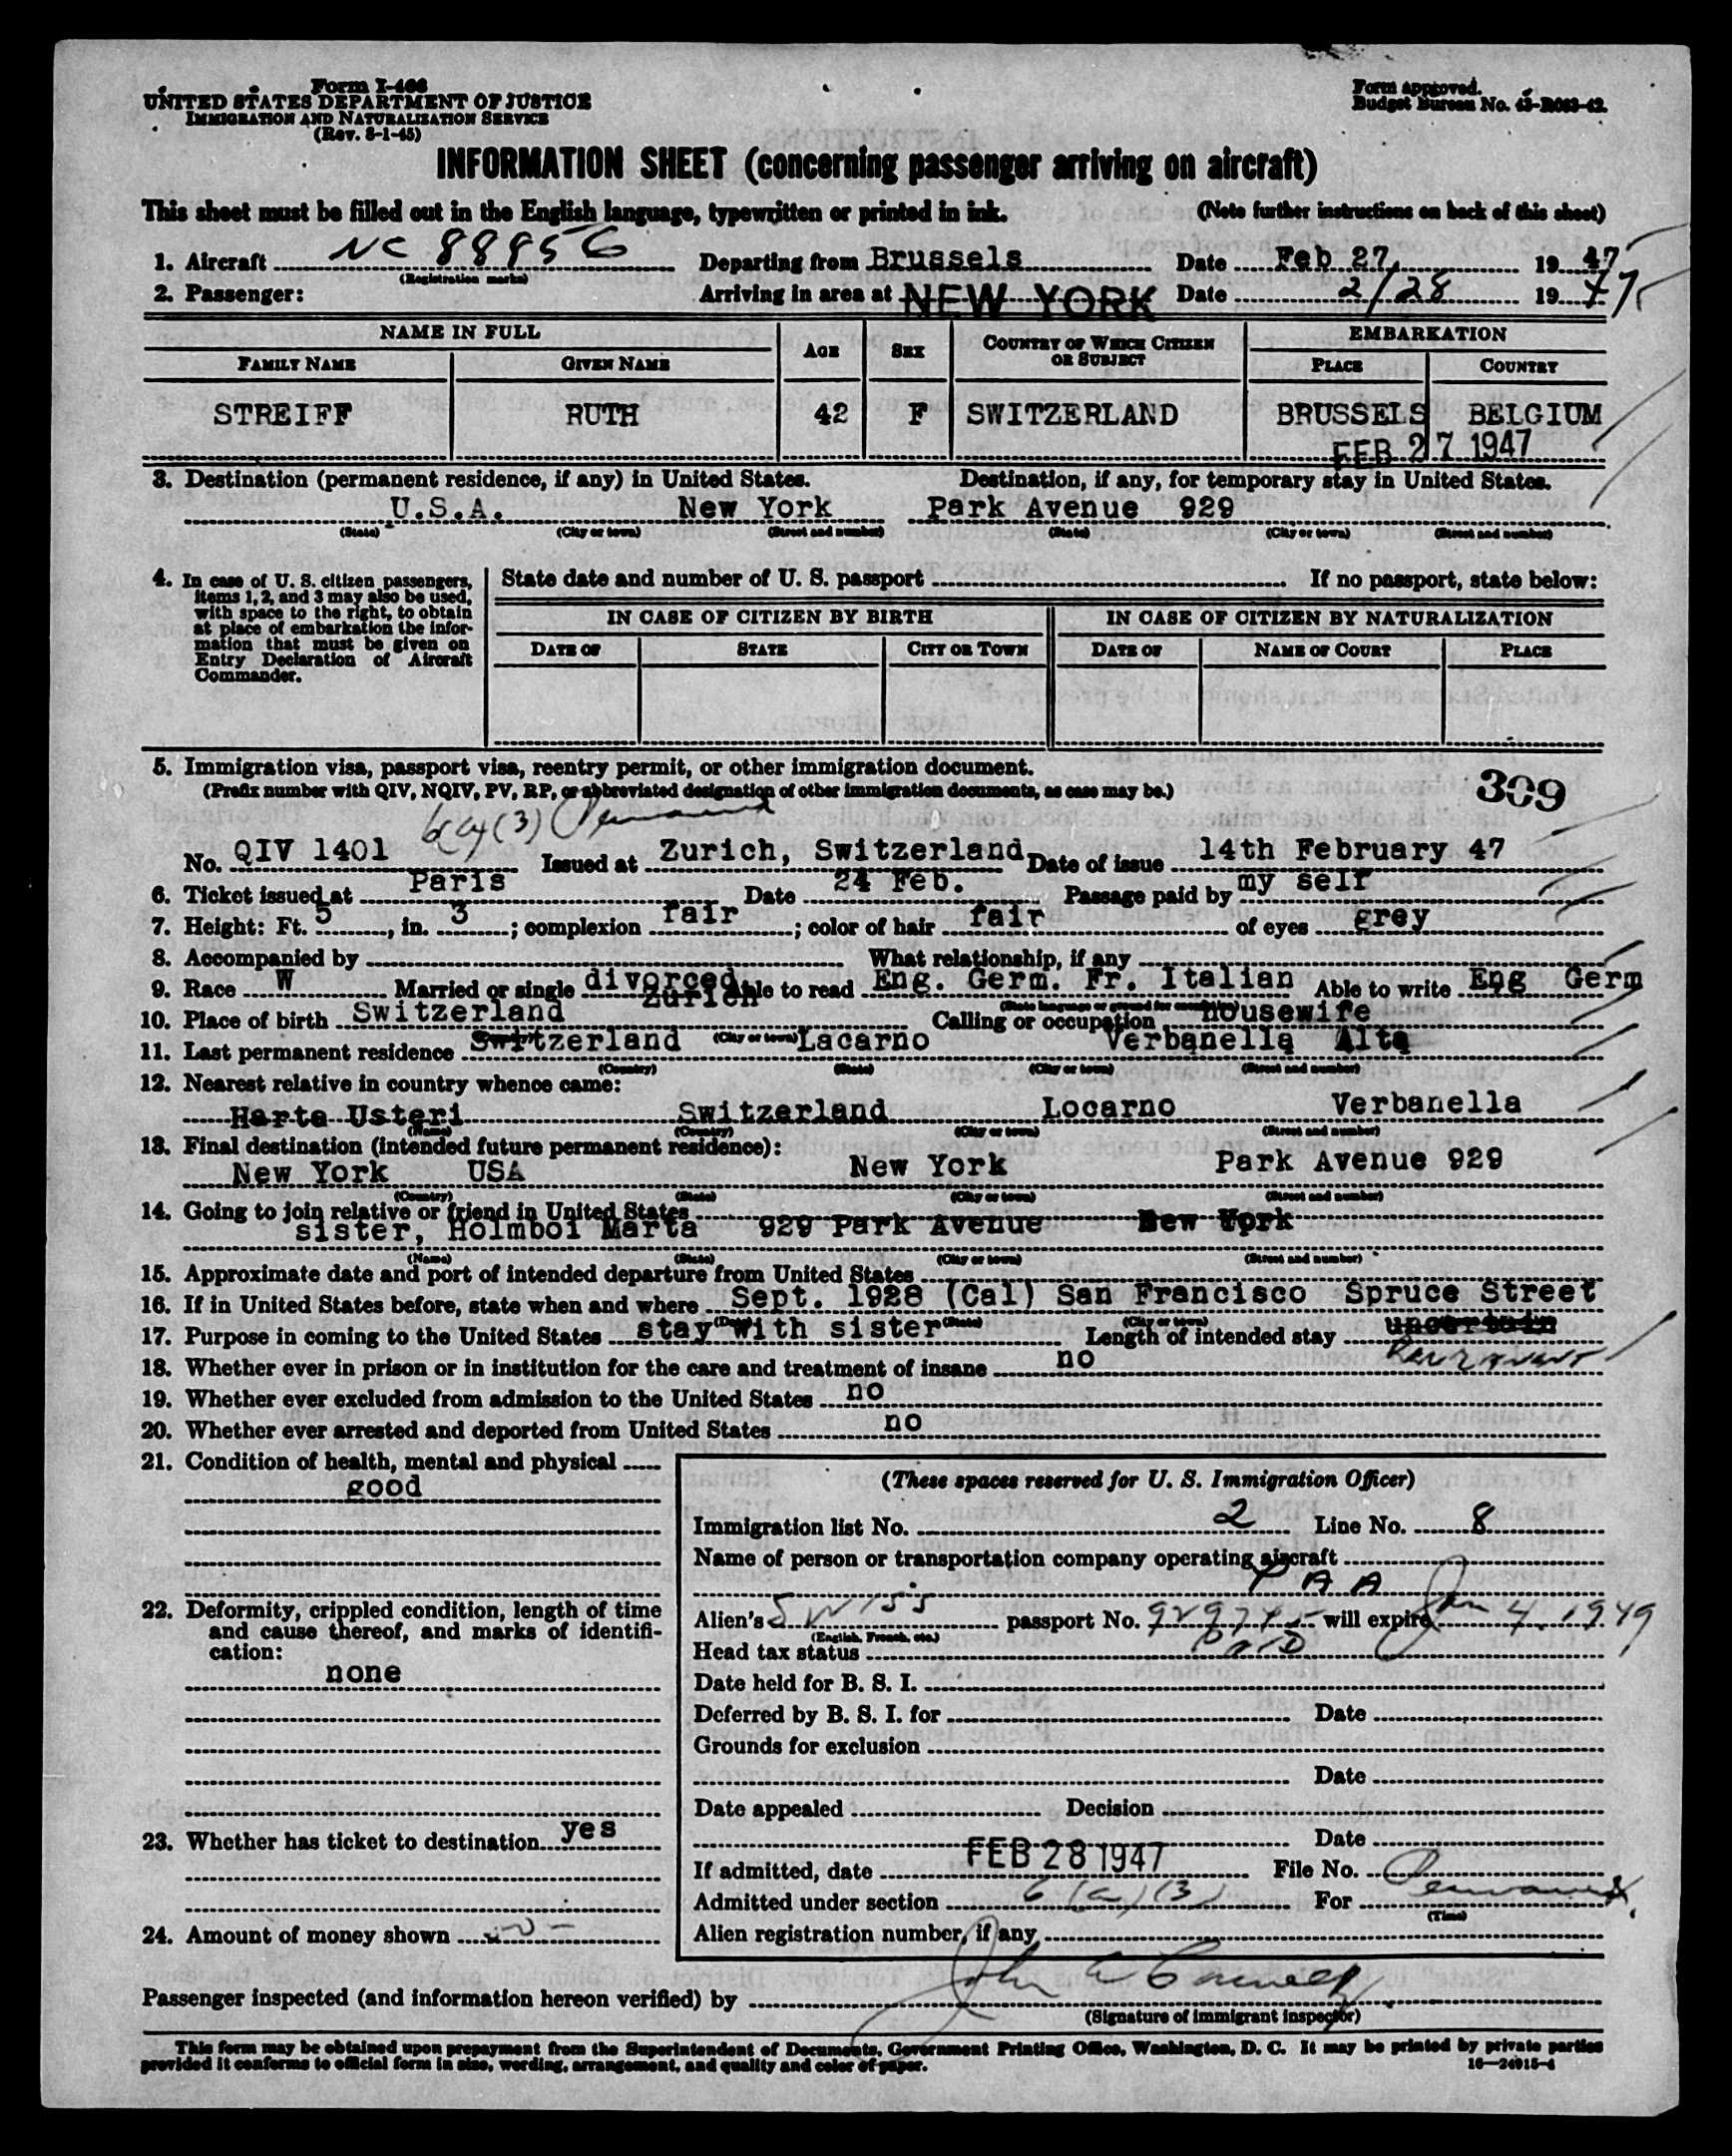 Form I-466
UNITED STATES DEPARTMENT OF JUSTICE
IMMIGRATION AND NATURALIZATION SERVICE
(Rev. 8-1-45)
Form approved.
Budget Bureau No. 43-R083-42.
INFORMATION SHEET (concerning passenger arriving on aircraft)
This sheet must be filled out in the English language, typewritten or printed in ink. (Note further instructions on back of this sheet)
1. Aircraft NC 88856 Departing from Brussels Date Feb 27, 19 47
(Registration marks)
2. Passenger: Arriving in area at NEW YORK Date 2/28 19 47
NAME IN FULL AGE SEX COUNTRY OF WHICH CITIZEN OR SUBJECT EMBARKATION
FAMILY NAME GIVEN NAME PLACE COUNTRY
STREIFF RUTH 42 F SWITZERLAND BRUSSELS BELGIUM
FEB 27 1947
3. Destination (permanent residence, if any) in United States. Destination, if any, for temporary stay in United States.
U.S.A. New York Park Avenue 929
(State) (City or town) (Street and number) (State) (City or town) (Street and number)
4. In case of U. S. citizen passengers, items 1, 2, and 3 may also be used, with space to the right, to obtain at place of embarkation the information that must be given on Entry Declaration of Aircraft Commander.
State date and number of U. S. passport If no passport, state below:
IN CASE OF CITIZEN BY BIRTH IN CASE OF CITIZEN BY NATURALIZATION
DATE OF STATE CITY OR TOWN DATE OF NAME OF COURT PLACE
5. Immigration visa, passport visa, reentry permit, or other immigration document.
(Prefix number with QIV, NQIV, PV, RP, or abbreviated designation of other immigration documents, as case may be.) 309
6(a)(3)
No. QIV 1401 Issued at Zurich, Switzerland Date of issue 14th February 47
6. Ticket issued at Paris Date 24 Feb. Passage paid by my self
7. Height: Ft. 5, in. 3; complexion fair; color of hair fair of eyes grey
8. Accompanied by What relationship, if any
9. Race W Married or single divorced Able to read Eng. Germ. Fr. Italian Able to write Eng Germ
(State language or ground for exemption)
10. Place of birth Switzerland Zurich Calling or occupation housewife
(City or town)
11. Last permanent residence Switzerland Lacarno Verbanella Alta
(Country) (State) (City or town) (Street and number)
12. Nearest relative in country whence came:
Harta Usteri Switzerland Locarno Verbanella
(Name) (Country) (City or town) (Street and number)
13. Final destination (intended future permanent residence):
New York USA New York Park Avenue 929
(Country) (State) (City or town) (Street and number)
14. Going to join relative or friend in United States
sister, Holmboi Marta 929 Park Avenue New York
(Name) (State) (City or town) (Street and number)
15. Approximate date and port of intended departure from United States
16. If in United States before, state when and where Sept. 1928 (Cal) San Francisco Spruce Street
(Date) (State) (City or town)
17. Purpose in coming to the United States stay with sister Length of intended stay uncertain
Permanent
18. Whether ever in prison or in institution for the care and treatment of insane no
19. Whether ever excluded from admission to the United States no
20. Whether ever arrested and deported from United States no
21. Condition of health, mental and physical
good
22. Deformity, crippled condition, length of time and cause thereof, and marks of identification:
none
23. Whether has ticket to destination yes
24. Amount of money shown
(These spaces reserved for U. S. Immigration Officer)
Immigration list No. 2 Line No. 8
Name of person or transportation company operating aircraft
P A A
Alien's Swiss passport No. will expire Jan 4, 1949
(English, French, etc.)
Head tax status Paid
Date held for B. S. I.
Deferred by B. S. I. for Date
Grounds for exclusion
Date
Date appealed Decision
Date
If admitted, date FEB 28 1947 File No.
Admitted under section 6(a)(3) For Permanent
(Time)
Alien registration number, if any
Passenger inspected (and information hereon verified) by
(Signature of immigrant inspector)
This form may be obtained upon prepayment from the Superintendent of Documents, Government Printing Office, Washington, D. C. It may be printed by private parties
provided it conforms to official form in size, wording, arrangement, and quality and color of paper. 16—24915-4